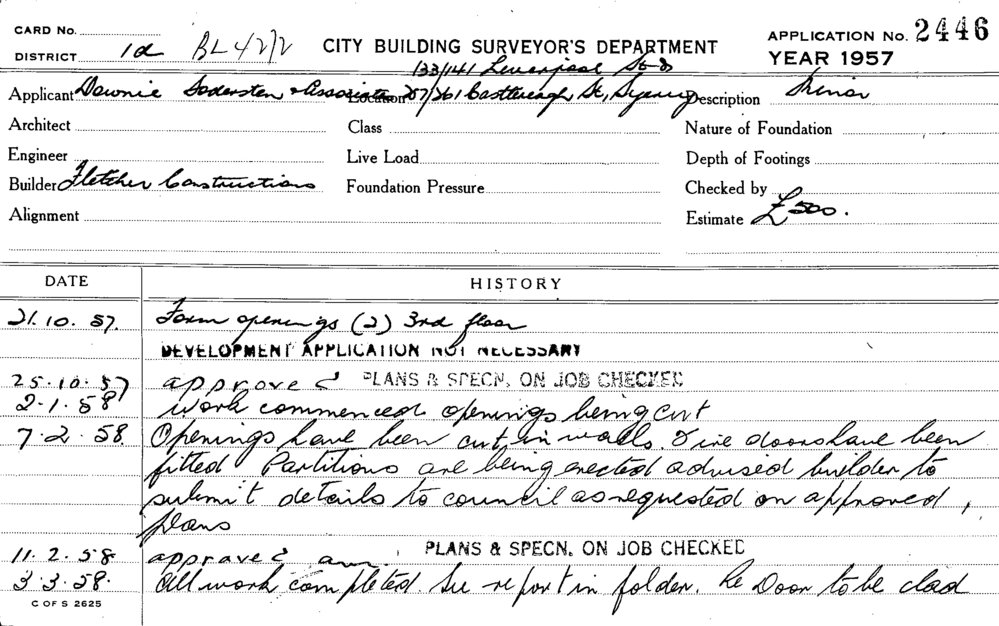 CARD No.
DISTRICT 1d BL 42/2 CITY BUILDING SURVEYOR'S DEPARTMENT APPLICATION No. 2446
YEAR 1957
133/141 Liverpool St &
Applicant Downie Sodersten & Associates Location 257/261 Castlereagh St, Sydney Description Minor
Architect Class Nature of Foundation
Engineer Live Load Depth of Footings
Builder Fletcher Constructions Foundation Pressure Checked by
Alignment Estimate £500.
DATE HISTORY
21.10.57. Form openings (2) 3rd floor
DEVELOPMENT APPLICATION NOT NECESSARY
25.10.57 approved PLANS & SPECN. ON JOB CHECKED
2.1.58 Work commenced openings being cut
7.2.58 Openings have been cut in walls. Fire doors have been
fitted Partitions are being erected advised builder to
submit details to council as requested on approved
plans
11.2.58 approved PLANS & SPECN. ON JOB CHECKED
3.3.58. All work completed. See report in folder. Re Door to be clad
C OF S 2625